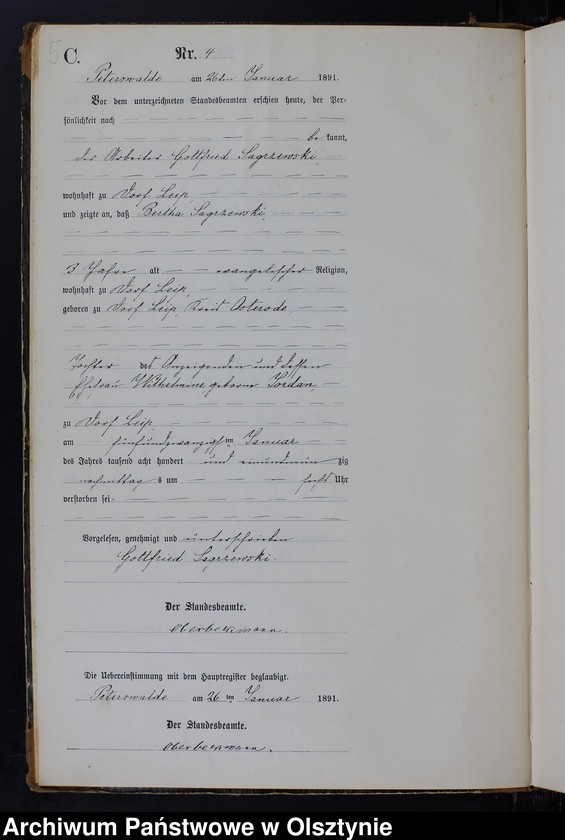 5 C. Nr. 4.
Peterswalde am 26ten Januar 1891.
Vor dem unterzeichneten Standesbeamten erschien heute, der Per-
sönlichkeit nach
be kannt,
der Arbeiter Gottfried Sagrzewski,
wohnhaft zu Dorf Leip,
und zeigte an, daß Bertha Sagrzewski,
3 Jahre alt evangelischer Religion,
wohnhaft zu Dorf Leip,
geboren zu Dorf Leip, Kreis Osterode,
Tochter des Anzeigenden und dessen
Ehefrau Wilhelmine geborne Jordan
zu Dorf Leip,
am fünfundzwanzigsten Januar
des Jahres tausend acht hundert und einundneun zig
nachmittag s um sechs Uhr
verstorben sei.
Vorgelesen, genehmigt und unterschrieben
Gottfried Sagrzewski.
Der Standesbeamte.
Oberbeckmann.
Die Uebereinstimmung mit dem Hauptregister beglaubigt.
Peterswalde am 26 ten Januar 1891.
Der Standesbeamte.
Oberbeckmann.
Archiwum Państwowe w Olsztynie